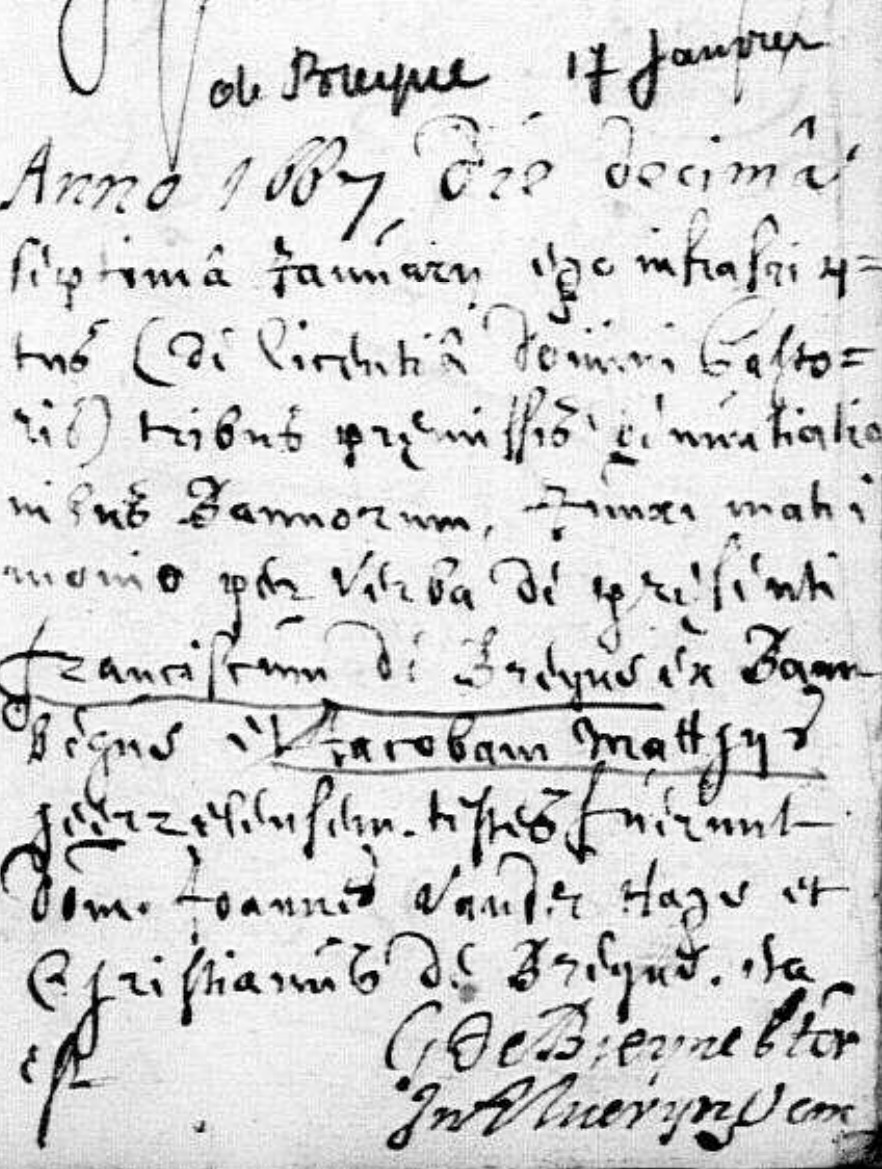 de Breyne 17 Janvier
Anno 1667 die decimâ
septimâ Januarii ego infrascrip=
tus (de licentiâ domini Pasto=
ris) tribus præmissis denuntiatio
nibus Bannorum, junxi matri
monio per verba de præsenti
franciscum de Breyne ex Baam
begne et Jacobam Matthys
testes fuerunt
dom. Joannes Vander Hage et
Christianus de Breyne. ita
est
G de Breyne
In